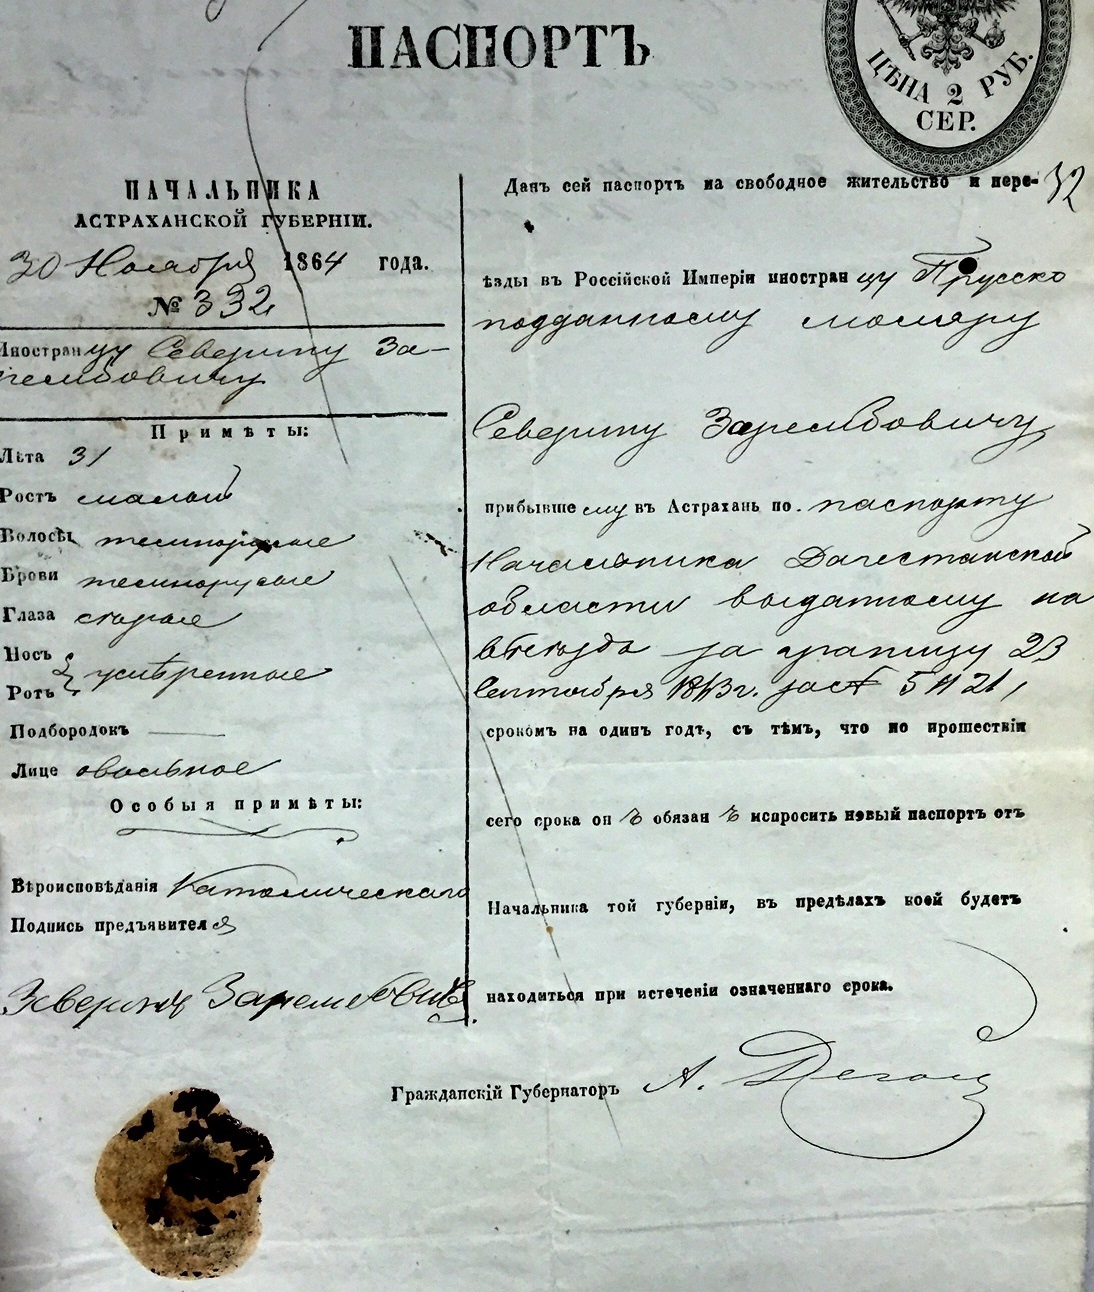 ПАСПОРТЪ
ЦѢНА 2 РУБ.
СЕР.
32
НАЧАЛЬНИКА
АСТРАХАНСКОЙ ГУБЕРНІИ.
30 Ноября 1864 года.
№ 332
Иностранцу Северину За-
рембовичу
Примѣты:
Лѣта 31
Ростъ малый
Волосы темнорусые
Брови темнорусые
Глаза старые
Носъ
Ротъ } умѣренные
Подбородокъ
Лице овальное
Особыя примѣты:
Вѣроисповѣданія Католическаго
Подпись предъявителя
Зеверинъ Зарембовичъ
Данъ сей паспортъ на свободное жительство и пере-
ѣзды въ Россійской Имперіи иностранцу Прусско
подданному столяру
Северину Зарембовичу
прибывшему въ Астрахань по паспорту
Начальника Дагестанской
области выданному на
за границу 23
Сентября 1863 г. за № 5421,
срокомъ на одинъ годъ, съ тѣмъ, что по прошествіи
сего срока онъ обязанъ испросить новый паспортъ отъ
Начальника той губерніи, въ предѣлахъ коей будетъ
находиться при истеченіи означеннаго срока.
Гражданскій Губернаторъ А. Дегай